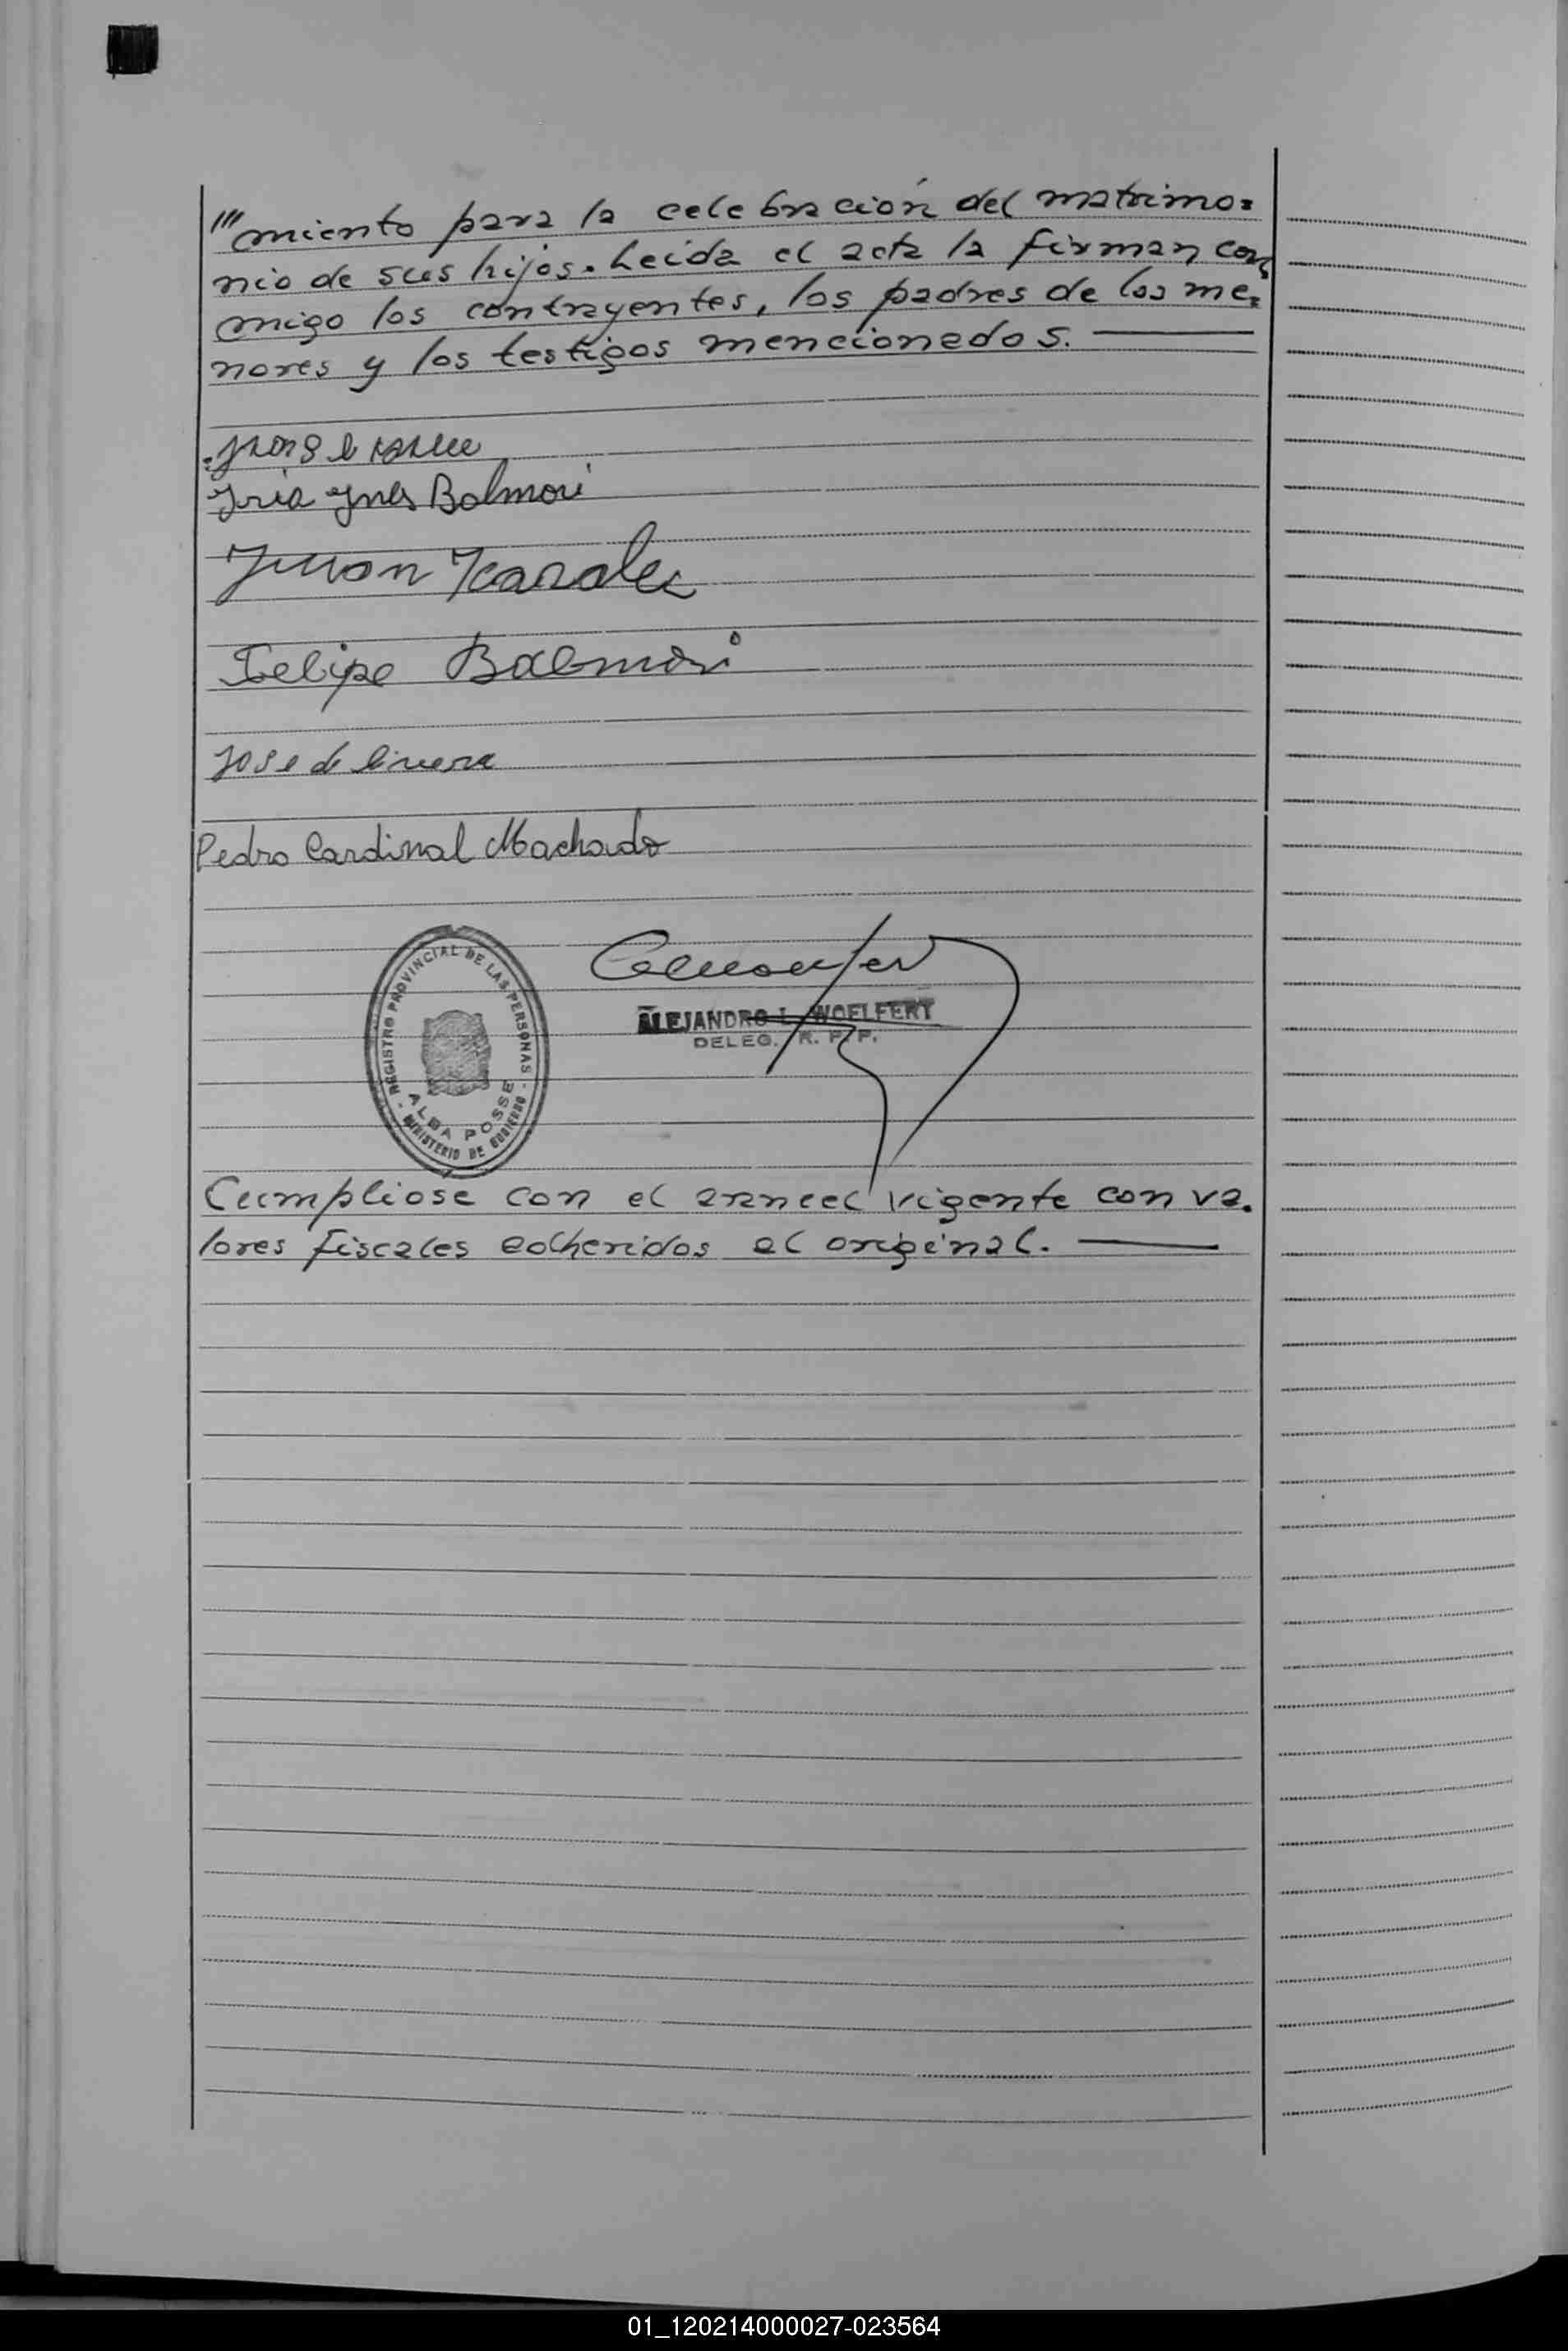 "'miento para la celebración del matrimo=
nio de sus hijos. Leida el acta la firman con=
migo los contrayentes, los padres de los me=
nores y los testigos mencionados.
Iria Ynes Balmori
Juan
Felipe Balmori
Jose de
Pedro Cardinal Machado
REGISTRO PROVINCIAL DE LAS PERSONAS
ALBA POSSE
MINISTERIO DE GOBIERNO
ALEJANDRO L. WOELFERT
DELEG. R. P. P.
Cumpliose con el arancel vigente con va.
lores fiscales adheridos al original.
01_120214000027-023564